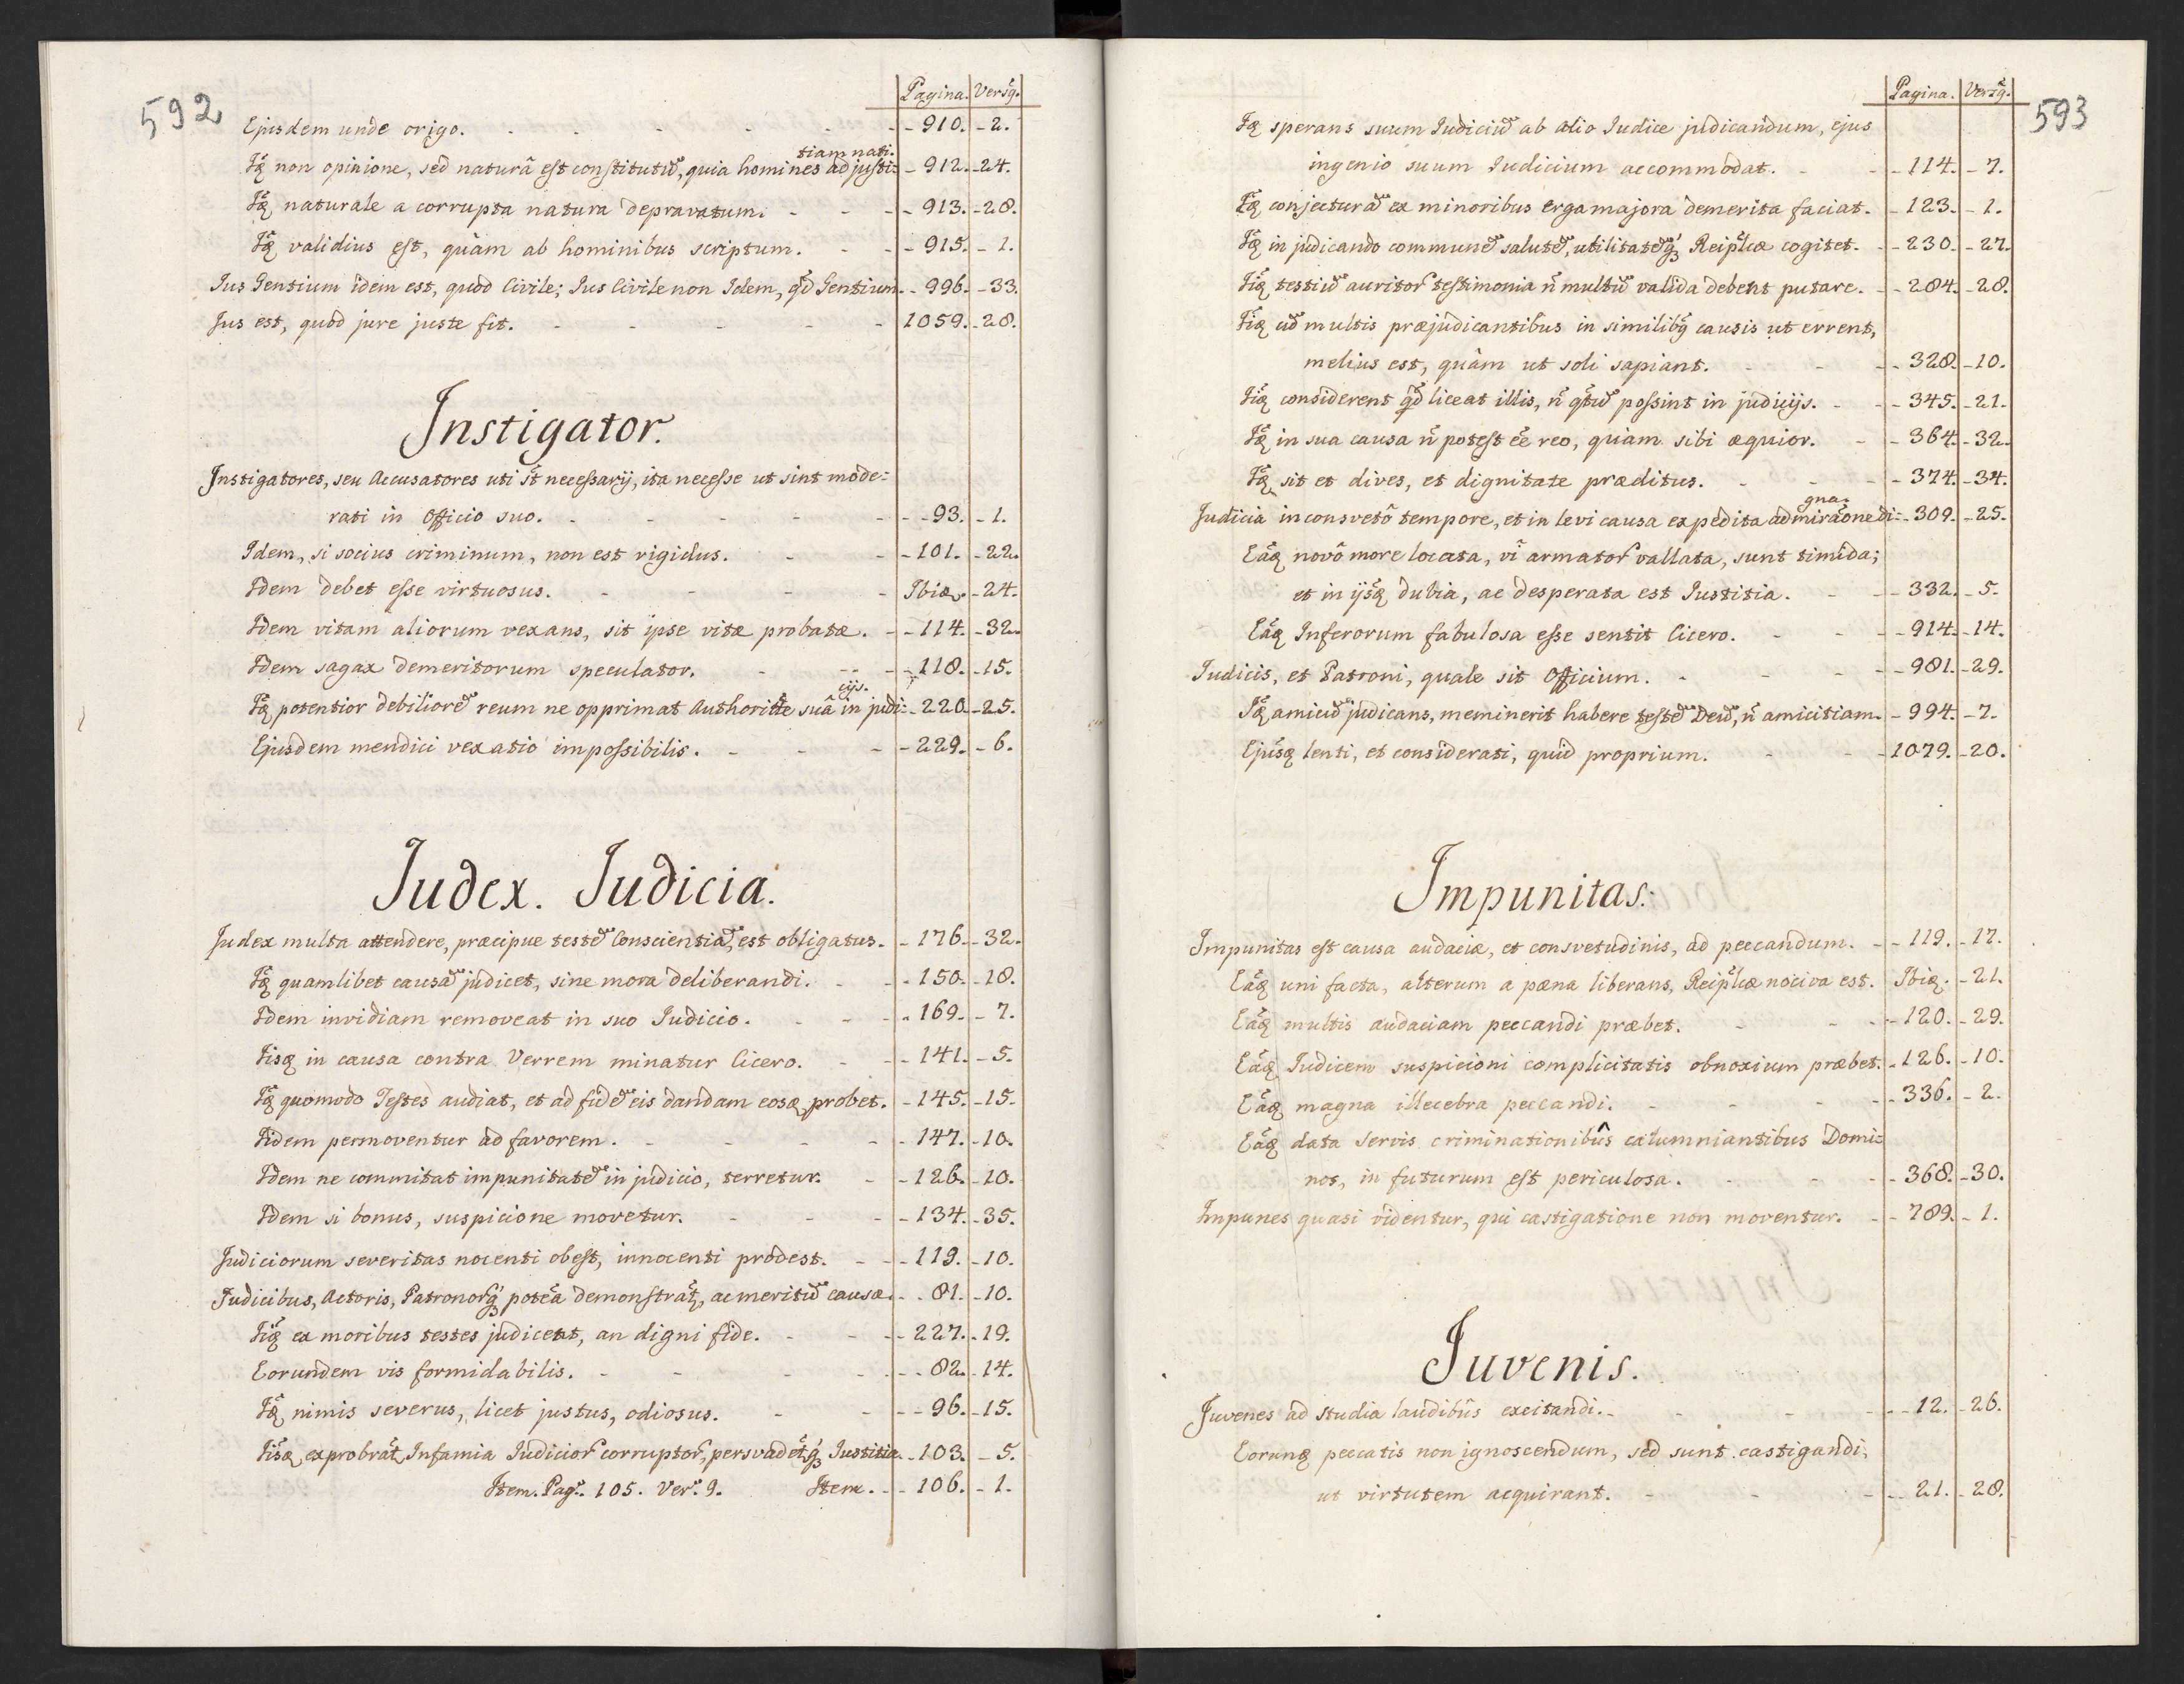 592
Pagina. Versq̃.
Ejusdem unde origo. - 910. - 2.
tiam nati.
Iq̃ non opinione, sed naturâ est constitutũ, quia homines ad justi= - 912. - 24.
Iq̃ naturale a corrupta natura depravatum. - 913. - 28.
Iq̃ validius est, quàm ab hominibus scriptum. - 915. - 1.
Jus Gentium idem est, quòd Civile; Jus Civile non Idem, qd̃ Gentium. - 996. - 33.
Jus est, quòd jure juste fit. - 1059. - 28.
Instigator.
Instigatores, seu Accusatores uti st̃ necessarij, ita necesse ut sint mode=
rati in Officio suo. - 93. - 1.
Idem, si socius criminum, non est rigidus. - 101. - 22.
Idem debet esse virtuosus. - Ibiq. - 24.
Idem vitam aliorum vexans, sit ipse vitæ probatæ. - 114. - 32.
Idem sagax demeritorum speculator. - 118. - 15.
cijs.
Iq̃ potentior debiliorẽ reum ne opprimat Authoritte suâ in judi= - 220. - 25.
Ejusdem mendici vexatio impossibilis. - 229. - 6.
Judex. Judicia.
Judex multa attendere, præcipue testẽ Conscientiã, est obligatus. - 176. - 32.
Iq̃ quamlibet causã judicet, sine mora deliberandi. - 150. - 18.
Idem invidiam removeat in suo Judicio. - 169. - 7.
Iisq in causa contra Verrem minatur Cicero. - 141. - 5.
Iq̃ quomodo Testes audiat, et ad fidẽ eis dandam eosq probet. - 145. - 15.
Iidem permoventur ad favorem. - 147. - 10.
Idem ne committat impunitatẽ in judicio, terretur. - 126. - 10.
Idem si bonus, suspicione movetur. - 134. - 35.
Judiciorum severitas nocenti obest, innocenti prodest. - 119. - 10.
Judicibus, Actoris, Patronorq́ʒ potẽa demonstrat̃, ac meritũ causæ. - 81. - 10.
Iiq̃ ex moribus testes judicent, an digni fide. - 227. - 19.
Eorundem vis formidabilis. - 82. - 14.
Iq̃ nimis severus, licet justus, odiosus. - 96. - 15.
Iisq̃ exprobrat̃ Infamia Judicior corruptor, persvadet̃q́ʒ Justitia. - 103. - 5.
Item. Pag: 105. Ver: 9. Item. - 106. - 1.
593
Pagina. Versq̃.
Iq̃ sperans suum Judiciũ ab alio Judice judicandum, ejus
ingenio suum Judicium accommodat. - 114. - 7.
Iq̃ conjecturã ex minoribus erga majora demerita faciat. - 123. - 1.
Iq̃ in judicando communẽ salutẽ, utilitatẽq́ʒ Reipl̃cæ cogitet. - 230. - 27.
Iiq̃ testiũ auritor testimonia ñ multũ valida debent putare. - 284. - 28.
Iiq̃ cũ multis præjudicantibus in similibq̃ causis ut errent,
melius est, quàm ut soli sapiant. - 328. - 10.
Iiq̃ considerent qd̃ liceat illis, ñ qt̃ũ possint in judicijs. - 345. - 21.
Iq̃ in sua causa ñ potest ẽe reo, quàm sibi æquior. - 364. - 32.
Iq̃ sit et dives, et dignitate præditus. - 374. - 34.
gna.
Judicia inconsvetô tempore, et in levi causa expedita admirãone di= - 309. - 25.
Eãq novô more locata, vî armator vallata, sunt timida;
et in ijsq̃ dubia, ac desperata est Justitia. - 332. - 5.
Eãq Inferorum fabulosa esse sentit Cicero. - 914. - 14.
Judicis, et Patroni, quale sit Officium. - 981. - 29.
Iq̃ amicũ judicans, meminerit habere testẽ Deũ, ñ amicitiam. - 994. - 7.
Ejusq̃ lenti, et considerati, quid proprium. - 1079. - 20.
Impunitas.
Impunitas est causa audaciæ, et consvetudinis, ad peccandum. - 119. - 17.
Eãq uni facta, alterum a pæna liberans, Reipl̃cæ nociva est. Ibiq. - 21.
Eãq multis audaciam peccandi præbet. - 120. - 29.
Eãq Judicem suspicioni complicitatis obnoxium præbet. - 126. - 10.
Eãq magna illecebra peccandi. - 336. - 2.
Eãq data servis criminationibûs calumniantibus Domi=
nos, in futurum est periculosa. - 368. - 30.
Impunes quasi videntur, qui castigatione non moventur. - 789. - 1.
Juvenis.
Juvenes ad studia laudibûs excitandi. - 12. - 26.
Eorunq peccatis non ignoscendum, sed sunt castigandi,
ut virtutem acquirant. - 21. - 28.